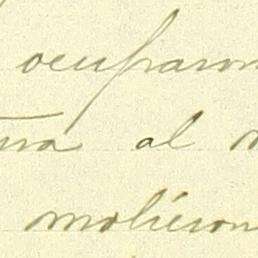 ocuparon
una al
moliéron